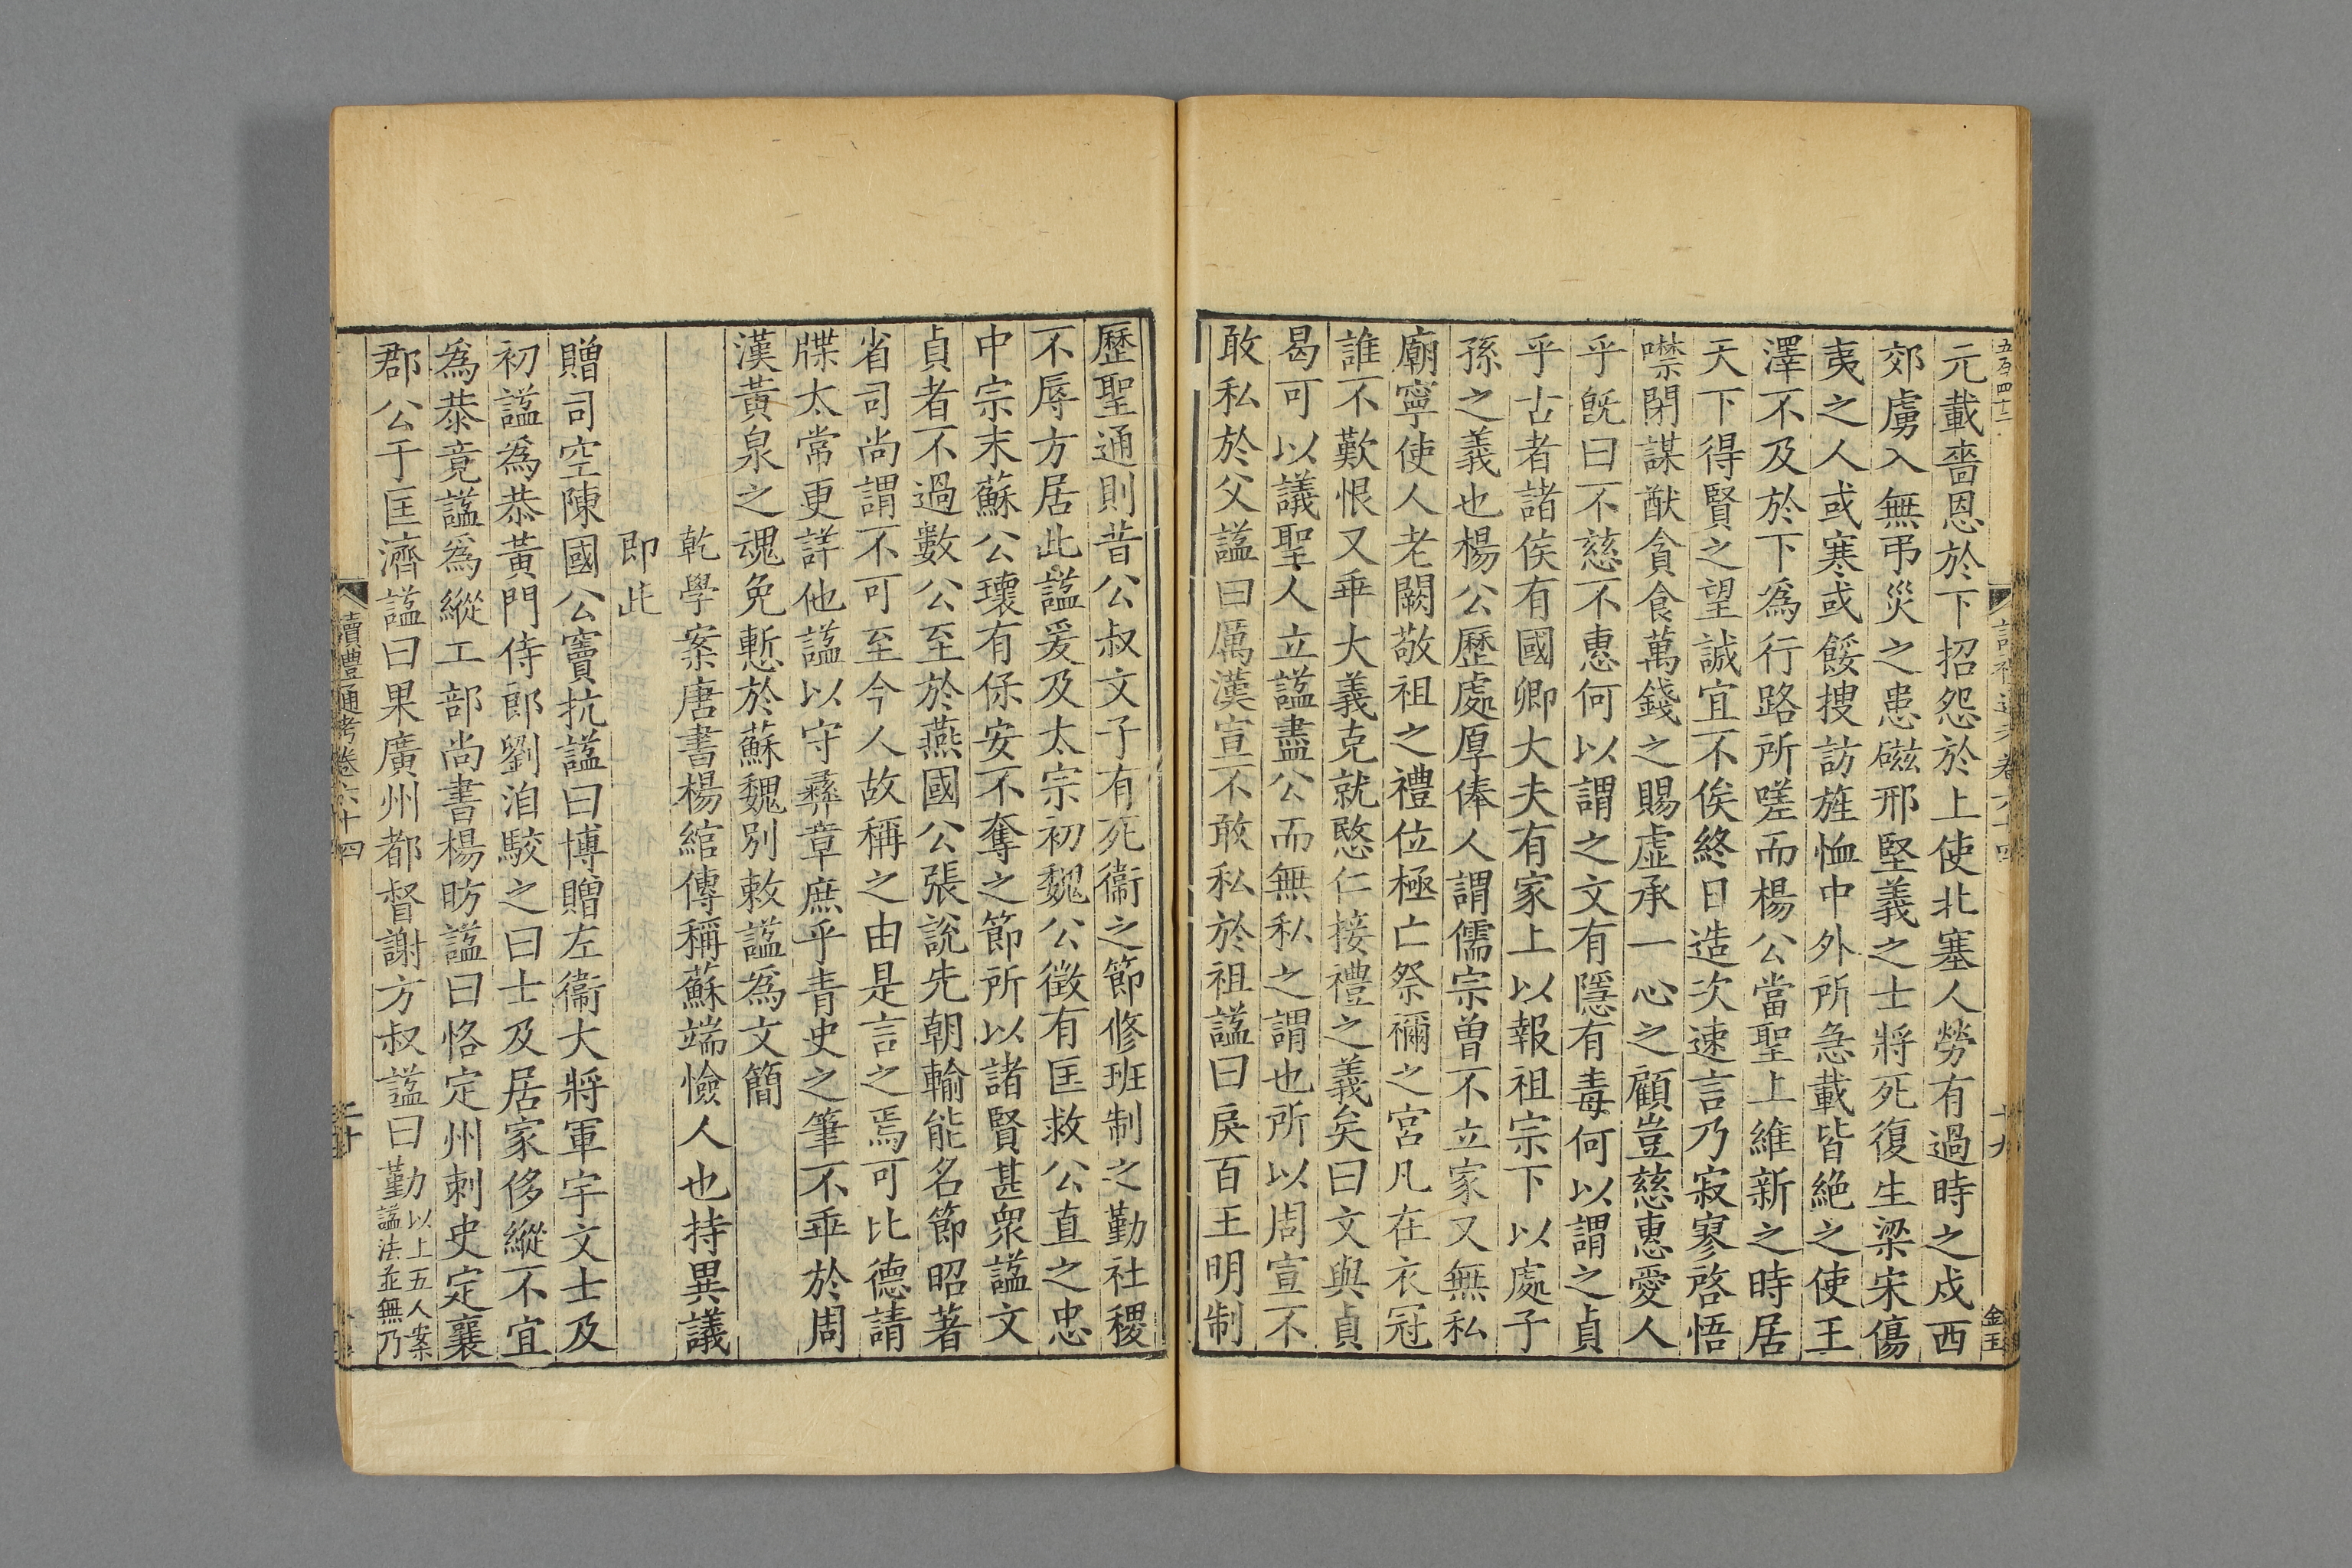 五百四十二
十九
金玉
元載嗇恩於下招怨於上使北塞人勞有過時之戍西
郊虜入無弔災之患磁邢堅義之士將死復生梁宋傷
夷之人或寒或餒搜訪旌恤中外所急載皆絶之使王
澤不及於下爲行路所嗟而楊公當聖上維新之時居
天下得賢之望誠宜不俟終日造次速言乃寂寥啓悟
噤閉謀猷貪食萬錢之賜虛承一心之顧豈慈惠愛人
乎旣曰不慈不惠何以謂之文有隱有毒何以謂之貞
乎古者諸侯有國卿大夫有家上以報祖宗下以處子
孫之義也楊公歷處厚俸人謂儒宗曾不立家又無私
廟寧使人老闕敬祖之禮位極亡祭禰之宮凡在衣冠
誰不歎恨又乖大義克就愍仁接禮之義矣曰文與貞
曷可以議聖人立謚盡公而無私之謂也所以周宣不
敢私於父謚曰厲漢宣不敢私於祖謚曰戾百王明制
歷聖通則昔公叔文子有死衞之節修班制之勤社稷
不辱方居此謚爰及太宗初魏公徵有匡救公直之忠
中宗末蘇公瓌有保安不奪之節所以諸賢甚衆謚文
貞者不過數公至於燕國公張說先朝輸能名節昭著
省司尚謂不可至今人故稱之由是言之焉可比德請
牒太常更詳他謚以守彞章庶乎青史之筆不乖於周
漢黃泉之魂免慙於蘇魏別敕謚爲文簡
乾學案唐書楊綰傳稱蘇端憸人也持異議
即此
贈司空陳國公竇抗謚曰博贈左衞大將軍宇文士及
初謚爲恭黃門侍郎劉洎駮之曰士及居家侈縱不宜
爲恭竟謚爲縱工部尚書楊昉謚曰恪定州刺史定襄
郡公于匡濟謚曰果廣州都督謝方叔謚曰勤以上五人案
謚法並無乃
讀禮通考卷六十四
二十